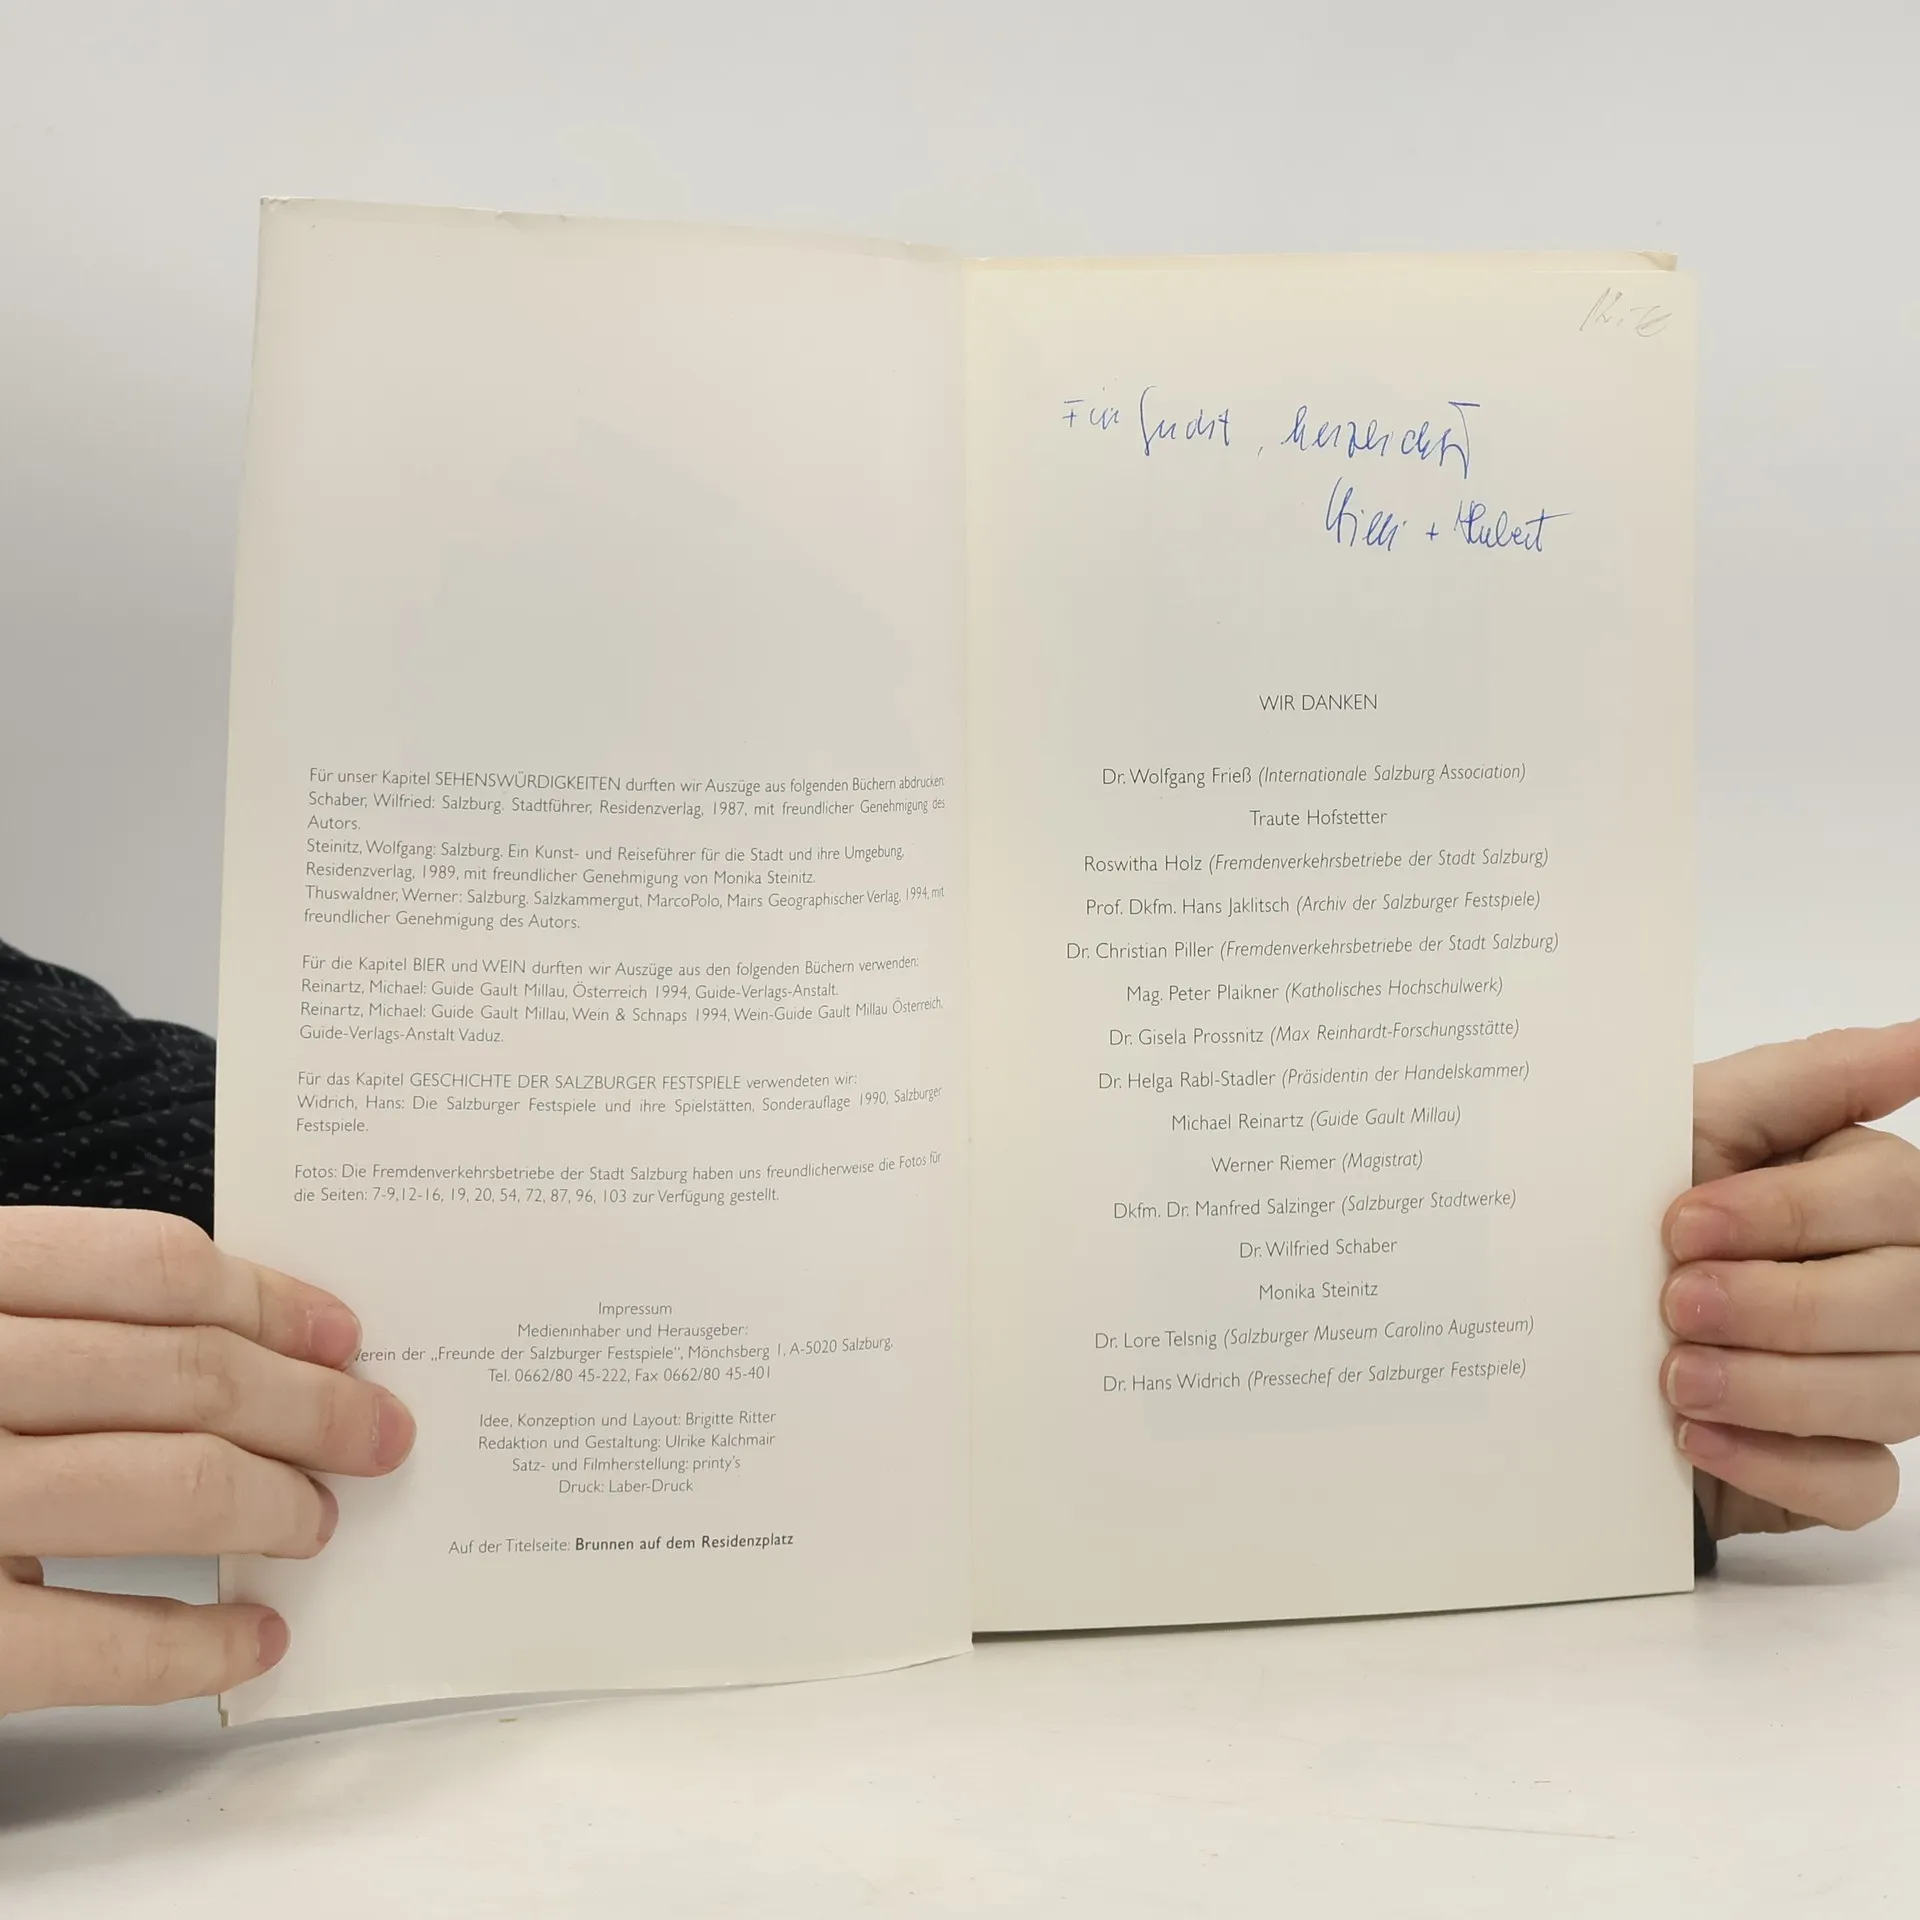 Für unser Kapitel SEHENSWÜRDIGKEITEN durften wir Auszüge aus folgenden Büchern abdrucken:
Schaber, Wilfried: Salzburg. Stadtführer, Residenzverlag, 1987, mit freundlicher Genehmigung des
Autors.
Steinitz, Wolfgang: Salzburg. Ein Kunst- und Reiseführer für die Stadt und ihre Umgebung,
Residenzverlag, 1989, mit freundlicher Genehmigung von Monika Steinitz.
Thuswaldner, Werner: Salzburg. Salzkammergut, MarcoPolo, Mairs Geographischer Verlag, 1994, mit
freundlicher Genehmigung des Autors.
Für die Kapitel BIER und WEIN durften wir Auszüge aus den folgenden Büchern verwenden:
Reinartz, Michael: Guide Gault Millau, Österreich 1994, Guide-Verlags-Anstalt.
Reinartz, Michael: Guide Gault Millau, Wein & Schnaps 1994, Wein-Guide Gault Millau Österreich,
Guide-Verlags-Anstalt Vaduz.
Für das Kapitel GESCHICHTE DER SALZBURGER FESTSPIELE verwendeten wir:
Widrich, Hans: Die Salzburger Festspiele und ihre Spielstätten, Sonderauflage 1990, Salzburger
Festspiele.
Fotos: Die Fremdenverkehrsbetriebe der Stadt Salzburg haben uns freundlicherweise die Fotos für
die Seiten: 7-9,12-16, 19, 20, 54, 72, 87, 96, 103 zur Verfügung gestellt.
Impressum
Medieninhaber und Herausgeber:
Verein der „Freunde der Salzburger Festspiele“, Mönchsberg 1, A-5020 Salzburg,
Tel. 0662/80 45-222, Fax 0662/80 45-401
Idee, Konzeption und Layout: Brigitte Ritter
Redaktion und Gestaltung: Ulrike Kalchmair
Satz- und Filmherstellung: printy's
Druck: Laber-Druck
Auf der Titelseite: Brunnen auf dem Residenzplatz
Für , herzlichst
+ Hubert
WIR DANKEN
Dr. Wolfgang Frieß (Internationale Salzburg Association)
Traute Hofstetter
Roswitha Holz (Fremdenverkehrsbetriebe der Stadt Salzburg)
Prof. Dkfm. Hans Jaklitsch (Archiv der Salzburger Festspiele)
Dr. Christian Piller (Fremdenverkehrsbetriebe der Stadt Salzburg)
Mag. Peter Plaikner (Katholisches Hochschulwerk)
Dr. Gisela Prossnitz (Max Reinhardt-Forschungsstätte)
Dr. Helga Rabl-Stadler (Präsidentin der Handelskammer)
Michael Reinartz (Guide Gault Millau)
Werner Riemer (Magistrat)
Dkfm. Dr. Manfred Salzinger (Salzburger Stadtwerke)
Dr. Wilfried Schaber
Monika Steinitz
Dr. Lore Telsnig (Salzburger Museum Carolino Augusteum)
Dr. Hans Widrich (Pressechef der Salzburger Festspiele)